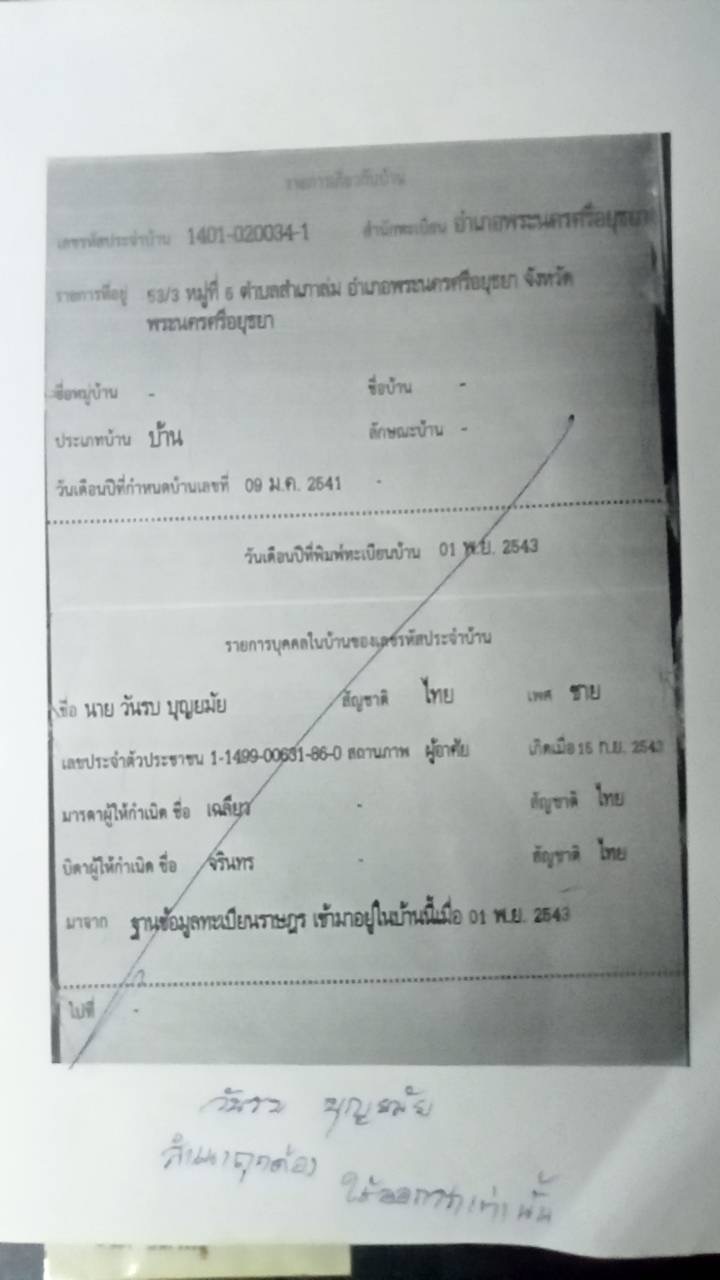 รายการเกี่ยวกับบ้าน
เลขรหัสประจำบ้าน 1401-020034-1 สำนักทะเบียน อำเภอพระนครศรีอยุธยา
รายการที่อยู่ 53/3 หมู่ที่ 5 ตำบลสำเภาล่ม อำเภอพระนครศรีอยุธยา จังหวัด
พระนครศรีอยุธยา
ชื่อหมู่บ้าน - ชื่อบ้าน -
ประเภทบ้าน บ้าน ลักษณะบ้าน -
วันเดือนปีที่กำหนดบ้านเลขที่ 09 ม.ค. 2541 -
วันเดือนปีที่พิมพ์ทะเบียนบ้าน 01 พ.ย. 2543
รายการบุคคลในบ้านของเลขรหัสประจำบ้าน
ชื่อ นาย วันรบ บุญยมัย สัญชาติ ไทย เพศ ชาย
เลขประจำตัวประชาชน 1-1499-00631-86-0 สถานภาพ ผู้อาศัย เกิดเมื่อ 15 ก.ย. 2543
มารดาผู้ให้กำเนิด ชื่อ เฉลียว - สัญชาติ ไทย
บิดาผู้ให้กำเนิด ชื่อ จรินทร - สัญชาติ ไทย
มาจาก ฐานข้อมูลทะเบียนราษฎร เข้ามาอยู่ในบ้านนี้เมื่อ 01 พ.ย. 2543
ไปที่ -
วันรบ บุญยมัย
สำเนาถูกต้อง